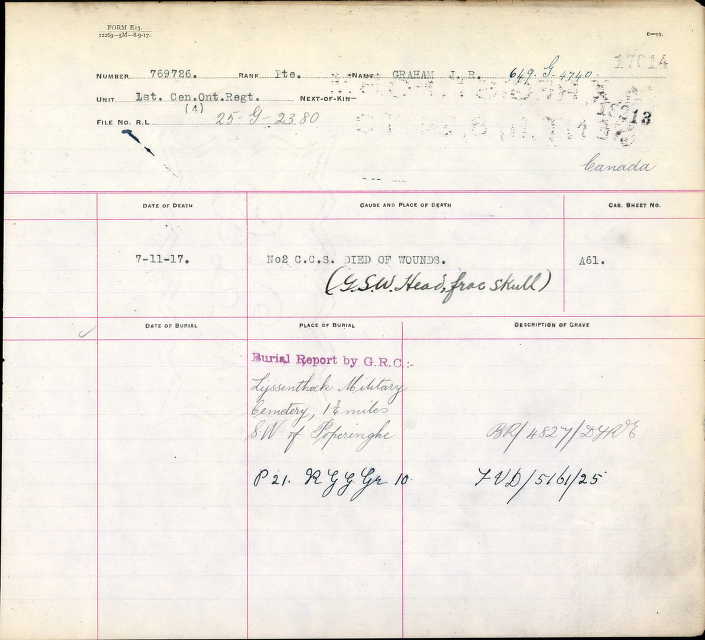 FORM R15.
NUMBER 769726. RANK Pte. NAME GRAHAM J. R. 649-G-4740
17014
UNIT 1st. Cen.Ont.Regt. NEXT-OF-KIN
(4)
FILE NO. R.L. 25-G-2380
13
Canada
DATE OF DEATH CAUSE AND PLACE OF DEATH CAS. SHEET NO.
7-11-17. No2 C.C.S. DIED OF WOUNDS. A61.
(G.S.W. Head, frac skull)
DATE OF BURIAL PLACE OF BURIAL DESCRIPTION OF GRAVE
Burial Report by G.R.C.:-
Lyssenthoek Military
Cemetery, 1½ miles
SW of Poperinghe
P 21. R G G Gr 10